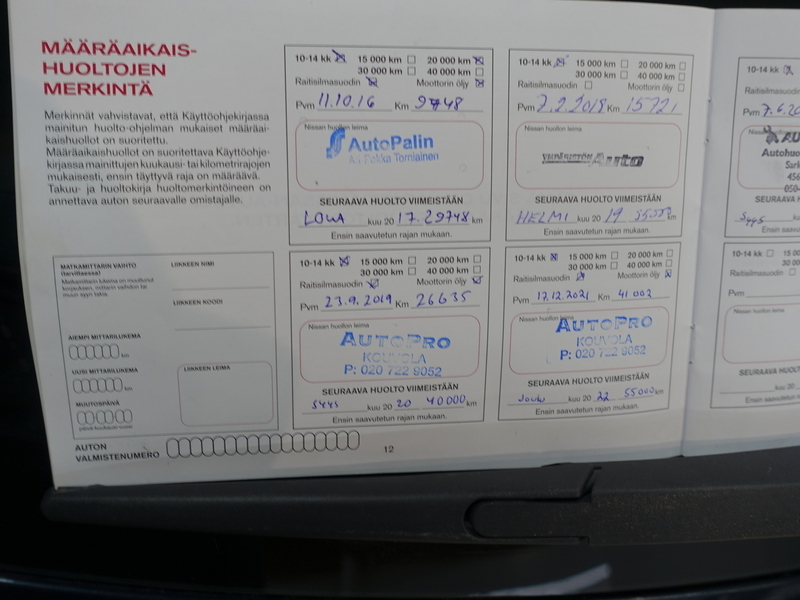 MÄÄRÄAIKAIS-
HUOLTOJEN
MERKINTÄ
Merkinnät vahvistavat, että Käyttöohjekirjassa
mainitun huolto-ohjelman mukaiset määräai-
kaishuollot on suoritettu.
Määräaikaishuollot on suoritettava Käyttöohje-
kirjassa mainittujen kuukausi- tai kilometrirajojen
mukaisesti, ensin täyttyvä raja on määräävä.
Takuu- ja huoltokirja huoltomerkintöineen on
annettava auton seuraavalle omistajalle.
MATKAMITTARIN VAIHTO
(tarvittaessa)
LIIKKEEN NIMI
LIIKKEEN KOODI
AIEMPI MITTARILUKEMA
km
UUSI MITTARILUKEMA
km
MUUTOSPÄIVÄ
LIIKKEEN LEIMA
AUTON
VALMISTENUMERO
10-14 kk 15 000 km 20 000 km
30 000 km 40 000 km
Raitisilmasuodin Moottorin öljy
Pvm 11.10.16 Km 9748
Nissan huollon leima
AutoPalin
SEURAAVA HUOLTO VIIMEISTÄÄN
LOKA kuu 20 17 29748 km
Ensin saavutetun rajan mukaan.
10-14 kk 15 000 km 20 000 km
30 000 km 40 000 km
Raitisilmasuodin Moottorin öljy
Pvm 7.2.2018 Km 15721
Nissan huollon leima
Auto
SEURAAVA HUOLTO VIIMEISTÄÄN
HELMI kuu 20 19 km
Ensin saavutetun rajan mukaan.
10-14 kk 15 000 km 20 000 km
30 000 km 40 000 km
Raitisilmasuodin Moottorin öljy
Pvm 23.9.2019 Km 26635
Nissan huollon leima
AUTOPRO
KOUVOLA
P: 020 722 9052
SEURAAVA HUOLTO VIIMEISTÄÄN
SYYS kuu 20 20 40000 km
Ensin saavutetun rajan mukaan.
10-14 kk 15 000 km 20 000 km
30 000 km 40 000 km
Raitisilmasuodin Moottorin öljy
Pvm 17.12.2021 Km 41002
Nissan huollon leima
AUTOPRO
KOUVOLA
P: 020 722 9052
SEURAAVA HUOLTO VIIMEISTÄÄN
Joulu kuu 20 22 55000 km
Ensin saavutetun rajan mukaan.
10-14 kk
Raitisilmasuodin
Pvm 7.6.20
Nissan huollon
AU
Autohuo
Sark
456
050-
SEURAAVA HU
Syys
Ensin saavutetun
10-14 kk 15 0
30 0
Raitisilmasuodin
Pvm
Nissan huollon leima
SEURAAVA HUOLT
Ensin saavutetun
12